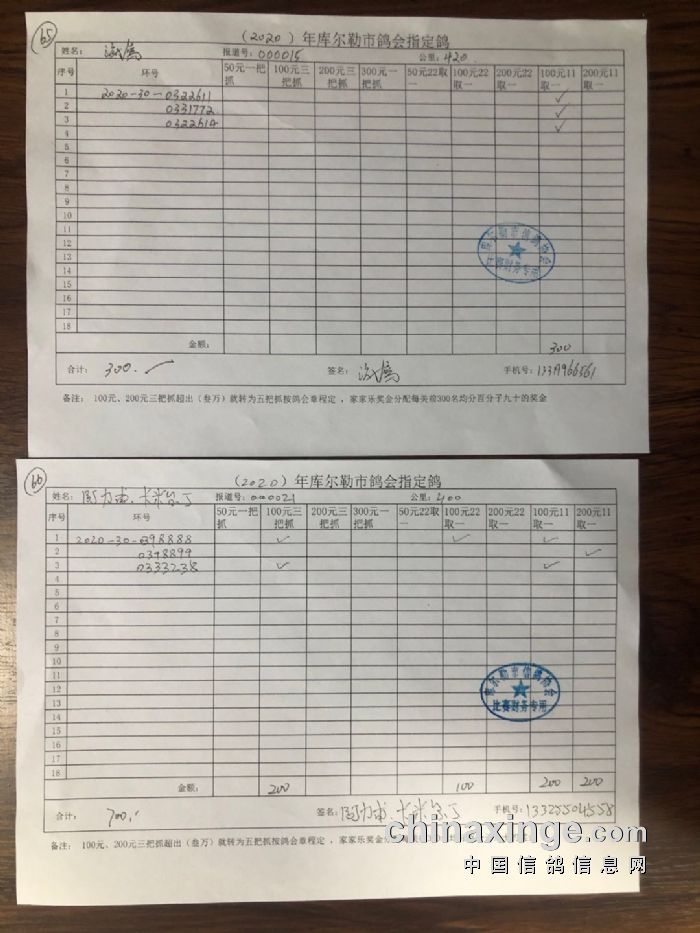 65
（2020）年库尔勒市鸽会指定鸽
姓名： 报道号：000015 公里：420
序号 环号 50元一把抓 100元三把抓 200元三把抓 300元一把抓 50元22取一 100元22取一 200元22取一 100元11取一 200元11取一
1 2020-30-0322611 ✓
2 0331772 ✓
3 0322614 ✓
4
5
6
7
8
9
10
11
12
13
14
15
16
17
18
库尔勒市信鸽协会
比赛财务专用
金额： 300
合计： 300.— 签名： 手机号：
备注： 100元、200元三把抓超出（叁万）就转为五把抓按鸽会章程定，家家乐奖金分配每关前300名均分百分子九十的奖金
66
（2020）年库尔勒市鸽会指定鸽
姓名： 报道号：000021 公里：400
序号 环号 50元一把抓 100元三把抓 200元三把抓 300元一把抓 50元22取一 100元22取一 200元22取一 100元11取一 200元11取一
1 2020-30-0398888 ✓ ✓ ✓
2 0398899 ✓
3 0333238 ✓ ✓
4
5
6
7
8
9
10
11
12
13
14
15
16
17
18
库尔勒市信鸽协会
比赛财务专用
金额： 200 100 200 200
合计： 700.- 签名： 手机号：13325504558
备注： 100元、200元三把抓超出（叁万）就转为五把抓按鸽会章程定，家家乐奖金分配每关前300名均分百分子九十的奖金
chinaxinge.com
中国信鸽信息网